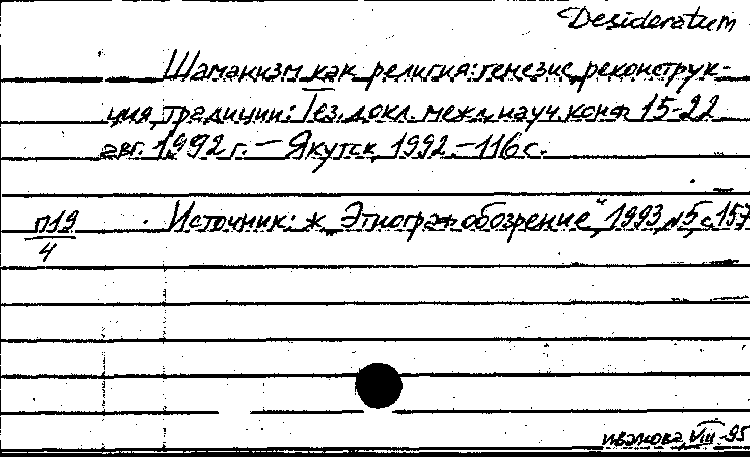 Desideratum
Шаманизм как религия: генезис, реконструк-
ция, традиции: Тез. докл. межд. науч. конф. 15-22
авг. 1992 г. — Якутск, 1992. — 116 с.
Источник: ж. „Этнограф. обозрение", 1993, №5, с. 157
п19
4
иванова, VIII-95